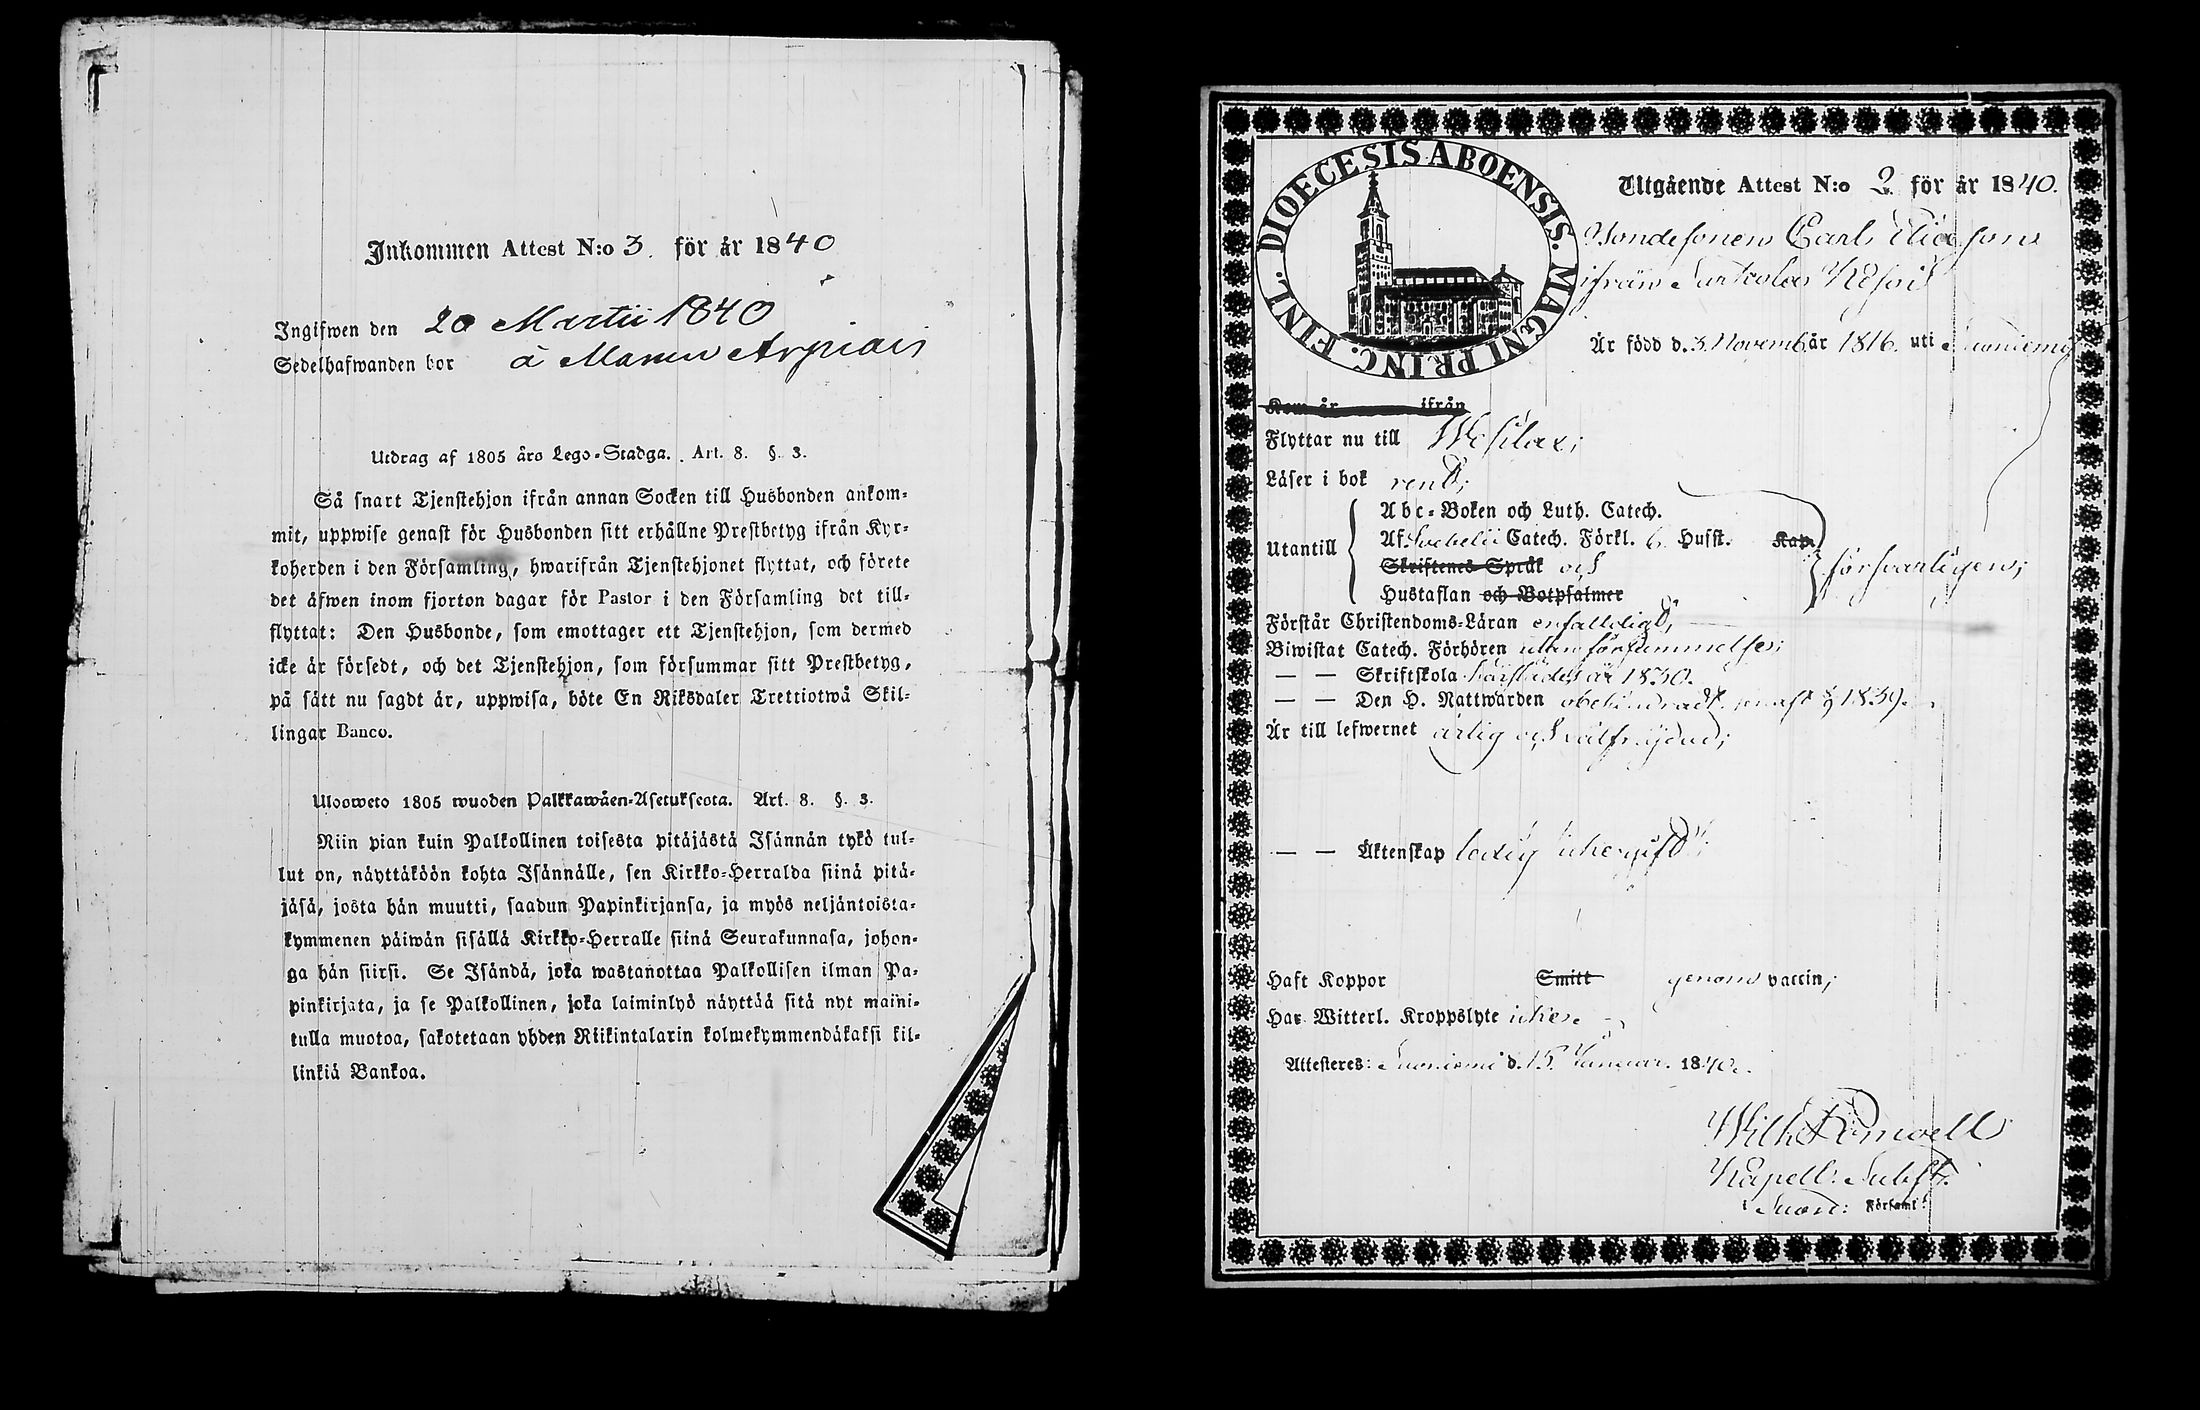 Inkommen Attest N:o 3. för år 1840
Ingifwen den 20 Martii 1840
Sedelhafwanden bor à Manun Arpiais
Utdrag af 1805 års Lego-Stadga. Art. 8. §. 3.
Så snart Tjenstehjon ifrån annan Socken till Husbonden ankom-
mit, uppwise genast för Husbonden sitt erhållne Prestbetyg ifrån Kyr-
koherden i den Församling, hwarifrån Tjenstehjonet flyttat, och förete
det äfwen inom fjorton dagar för Pastor i den Församling det till-
flyttat: Den Husbonde, som emottager ett Tjenstehjon, som dermed
icke är försedt, och det Tjenstehjon, som försummar sitt Prestbetyg,
på sätt nu sagdt är, uppwisa, böte En Riksdaler Trettiotwå Skil-
lingar Banco.
Ulosweto 1805 wuoden Palkkawäen-Asetuksesta. Art. 8. §. 3.
Niin pian kuin Palkollinen toisesta pitäjästä Isännän tykö tul-
lut on, näyttäköön kohta Isännälle, sen Kirkko-Herralda siinä pitä-
jäsä, josta hän muutti, saadun Papinkirjansa, ja myös neljäntoista-
kymmenen päiwän sisällä Kirkko-Herralle siinä Seurakunnasa, johon-
ga hän siirsi. Se Isändä, joka wastanottaa Palkollisen ilman Pa-
pinkirjata, ja se Palkollinen, joka laiminlyö näyttää sitä nyt maini-
tulla muotoa, sakotetaan yhden Riikintalarin kolmekymmendäkaksi kil-
linkiä Bankoa.
DIOECESIS ABOENSIS. MAGNI PRINC. FINL.
Utgående Attest N:o 2 för år 1840.
Bondesonen Carl
ifrån
Är född d. 3. Novemb. år 1816. uti Suoniemi
Kom år ifrån
Flyttar nu till Wesilax;
Läser i bok rent;
Utantill
Abc-Boken och Luth. Catech.
Af Svebelii Catech. Förkl. 6 Hufst. Kap.
Skriftenes Språk och
Hustaflan och Botpsalmer
försvarligen;
Förstår Christendoms-Läran enfalldeligt;
Biwistat Catech. Förhören utan försummelse;
— — Skriftskola år 1830.
— — Den H. Nattwarden obehindradt, senast 1839.
Är till lefwernet ärlig och välfrejdad;
— — Äktenskap ledig
Haft Koppor Smitt genom vaccin;
Har Witterl. Kroppslyte icke.
Attesteres: Suoniemi d. 15. Januar. 1840.
Wilh.
Kapell. Subst.
i Suon: Församl: